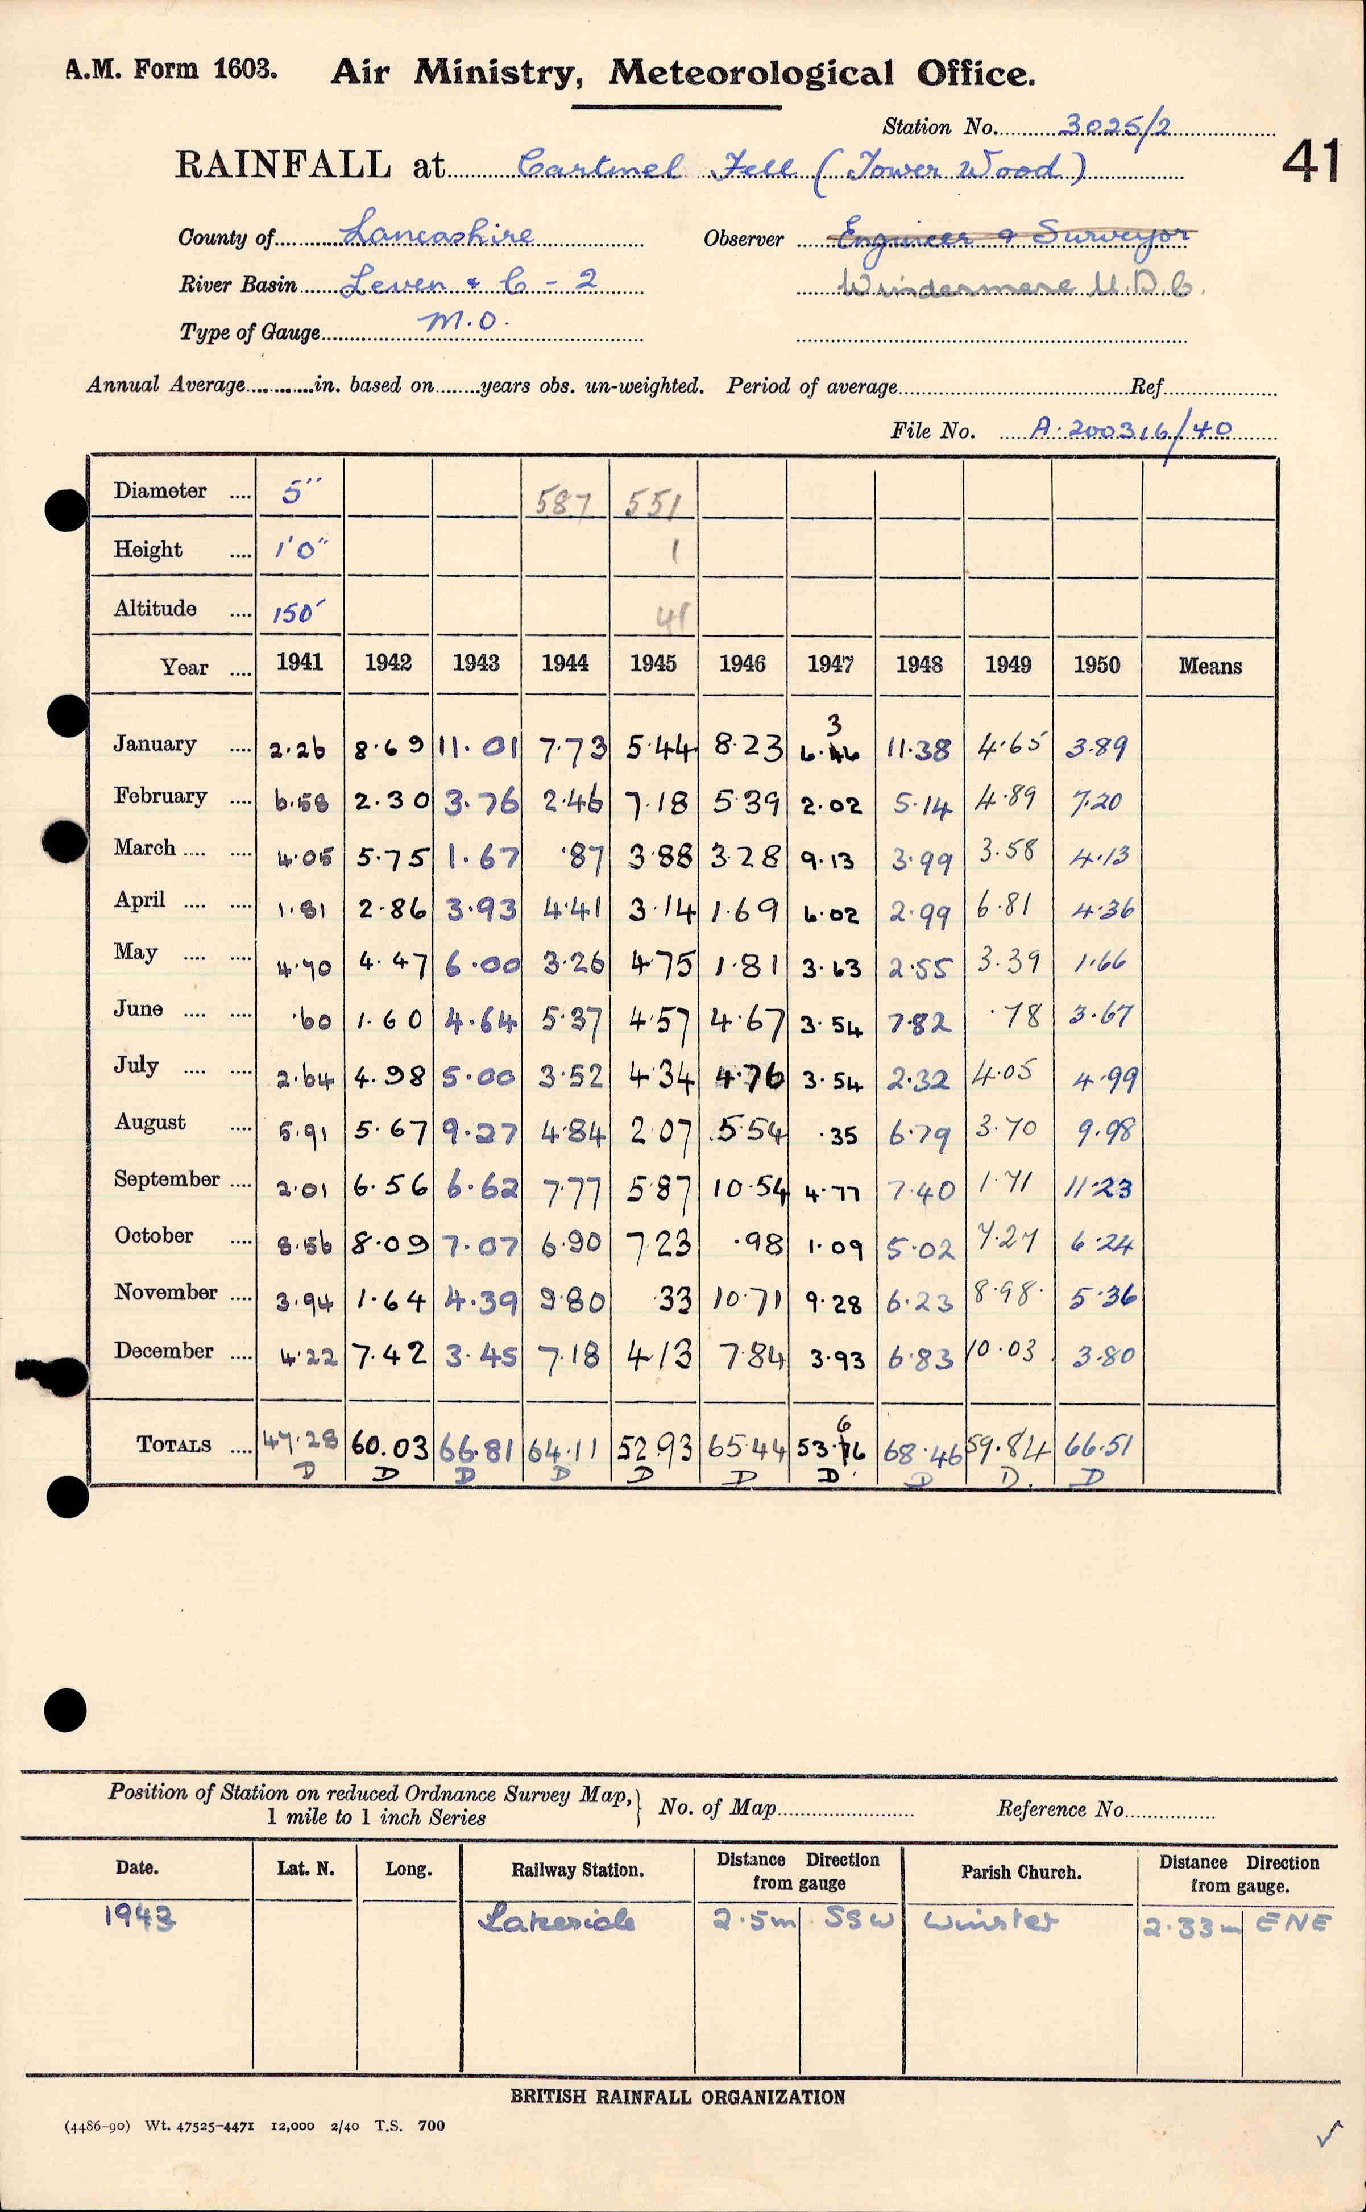 A.M. Form 1603. Air Ministry, Meteorological Office.
Station No. 3025/2
RAINFALL at Cartmel Fell (Tower Wood) 41
County of Lancashire Observer Engineer & Surveyor
River Basin Leven & C - 2 Windermere U.D.C.
Type of Gauge M.O.
Annual Average............in. based on........years obs. un-weighted. Period of average Ref
File No. A.200316/40
Diameter .... 5" 587 551
Height .... 1'0" 1
Altitude .... 150' 41
Year .... 1941 1942 1943 1944 1945 1946 1947 1948 1949 1950 Means
3
January .... 2.26 8.69 11.01 7.73 5.44 8.23 6.46 11.38 4.65 3.89
February .... 6.58 2.30 3.76 2.46 7.18 5.39 2.02 5.14 4.89 7.20
March .... .... 4.05 5.75 1.67 .87 3.88 3.28 9.13 3.99 3.58 4.13
April .... .... 1.81 2.86 3.93 4.41 3.14 1.69 6.02 2.99 6.81 4.36
May .... .... 4.70 4.47 6.00 3.26 4.75 1.81 3.63 2.55 3.39 1.66
June .... .... .60 1.60 4.64 5.37 4.57 4.67 3.54 7.82 .78 3.67
July .... .... 2.64 4.98 5.00 3.52 4.34 4.76 3.54 2.32 4.05 4.99
August .... 5.91 5.67 9.27 4.84 2.07 5.54 .35 6.79 3.70 9.98
September .... 2.01 6.56 6.62 7.77 5.87 10.54 4.77 7.40 1.71 11.23
October .... 8.56 8.09 7.07 6.90 7.23 .98 1.09 5.02 7.27 6.24
November .... 3.94 1.64 4.39 9.80 .33 10.71 9.28 6.23 8.98 5.36
December .... 4.22 7.42 3.45 7.18 4.13 7.84 3.93 6.83 10.03 3.80
6
TOTALS .... 47.28 60.03 66.81 64.11 52.93 65.44 53.76 68.46 59.84 66.51
D D D D D D D. D D. D
Position of Station on reduced Ordnance Survey Map,
1 mile to 1 inch Series } No. of Map Reference No
Date. Lat. N. Long. Railway Station. Distance Direction from gauge Parish Church. Distance Direction from gauge.
1943 Lakeside 2.5m SSW Winster 2.33m ENE
BRITISH RAINFALL ORGANIZATION
(4486-90) Wt. 47525-4471 12,000 2/40 T.S. 700